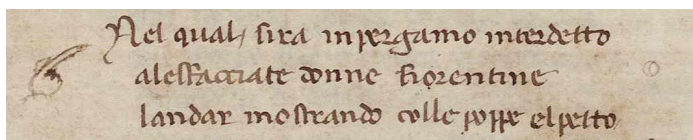 Nel qual sira inpergamo interdetto
alesfacciate donne fiorentine
landar mostrando colle poppe elpetto